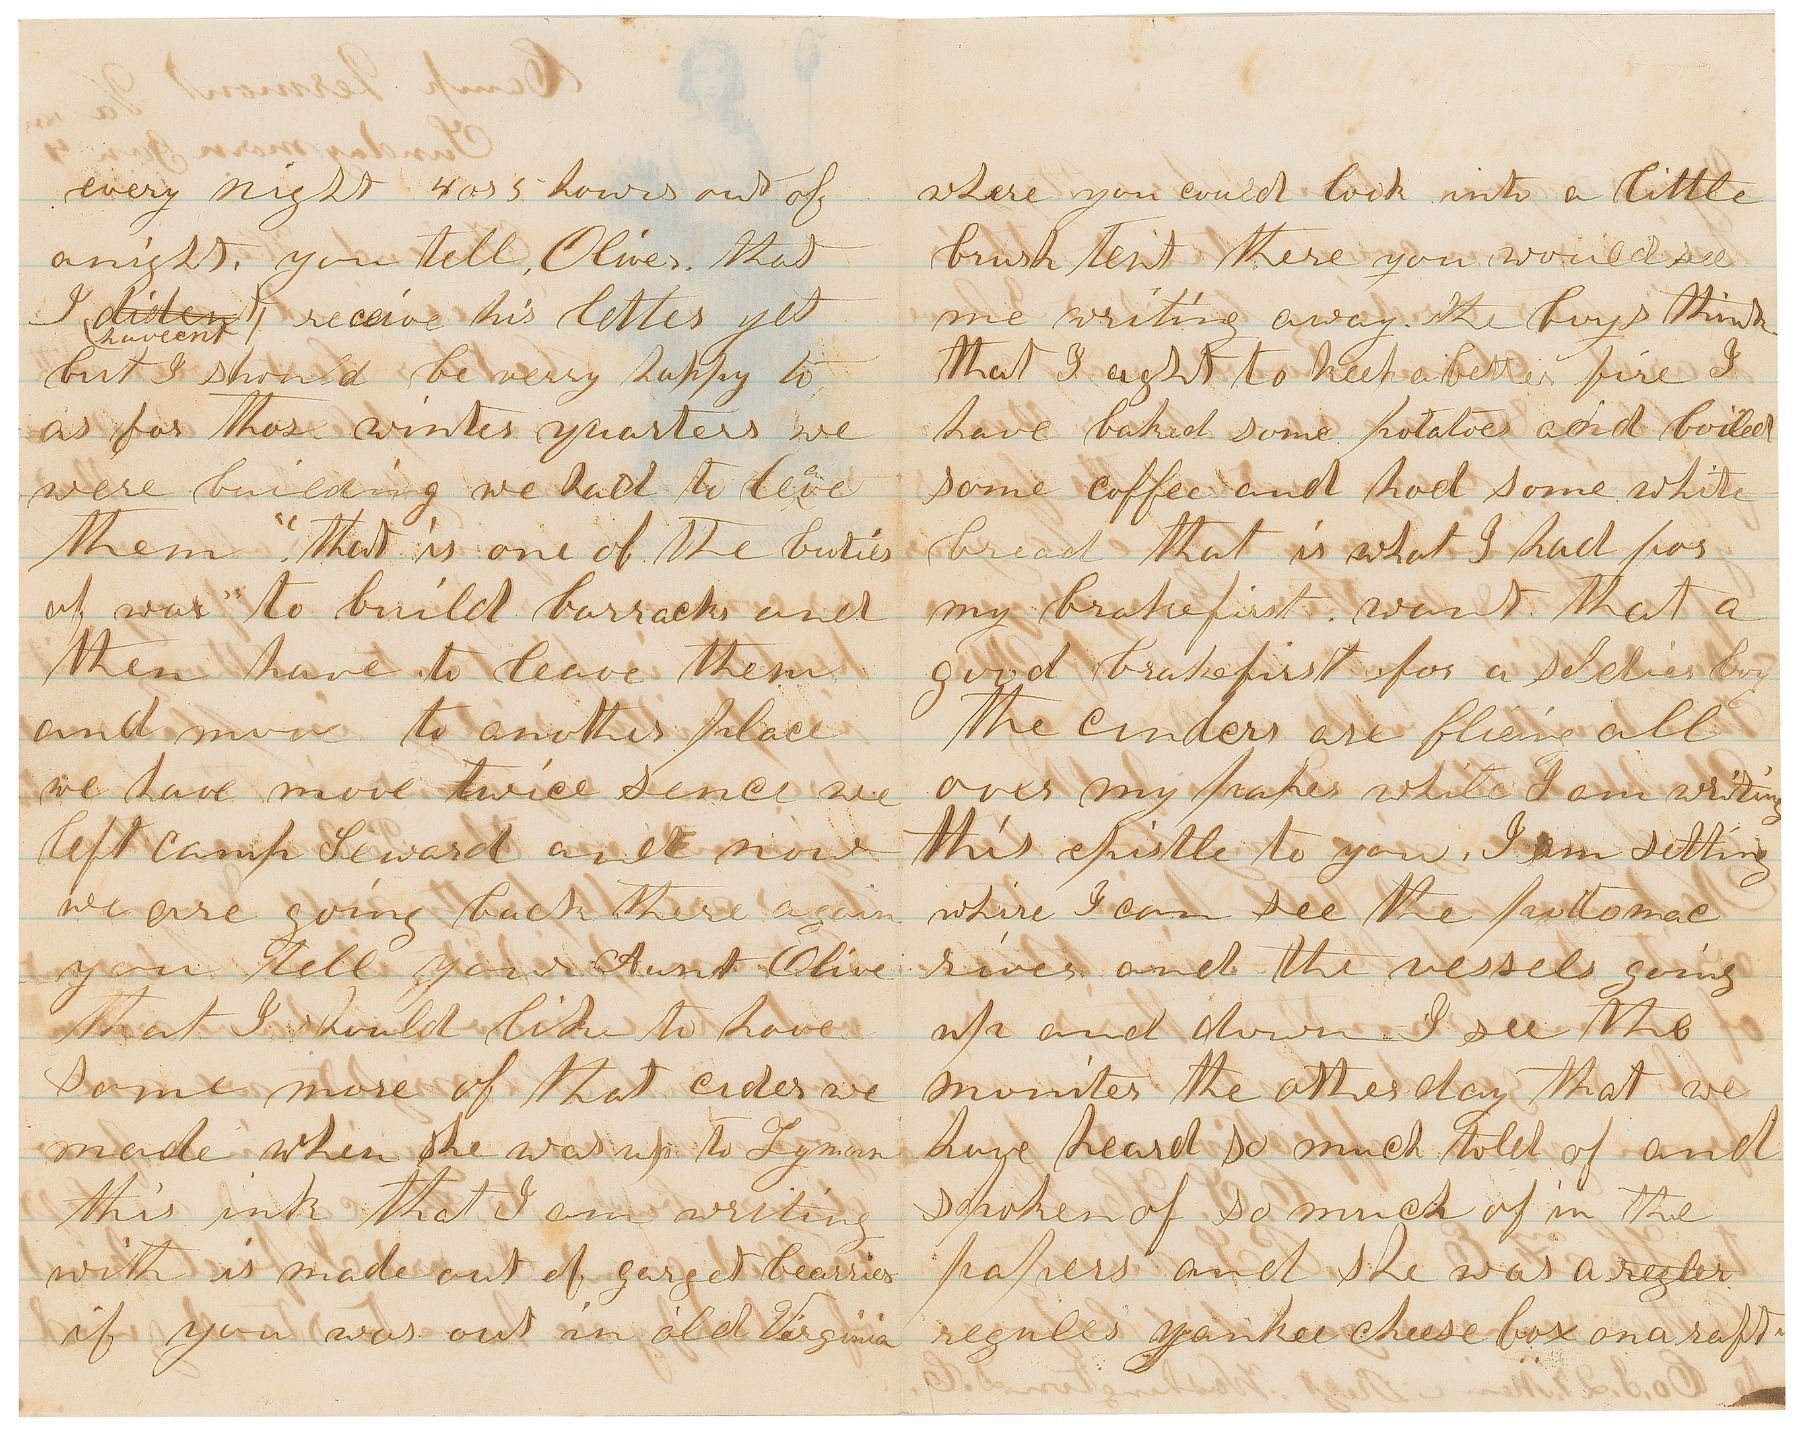 every night 4 or 5 hours out of
anight. you tell, Oliver. that
I dident receive his letter yet
havcent
but I should be verry happy to
as for those winter quarters we
were building we had to leave
them "that is one of the buties
of war" to build barracks and
then have to leave them
and move to another place
we have move twice sence we
left camp Seward and now
we are going back there again
you tell your Aunt Olive
that I should like to have
some more of that cider we
made when she was up to Lyman
this ink that I am writing
with is made out of garget bearries
if you was out in old Virginia
where you could look into a little
brush tent there you would see
me writing away. the boys think
that I aght to keep a better fire I
have baked some potatoes and boiled
some coffee and had some white
bread that is what I had for
my brakefirst. want that a
good brakefirst for a soldier boy
The cinders are flieing all
over my paper while I am writing
this epistle to you. I am setting
where I can see the pottomac
river and the vessels going
up and down I see the
moniter the other day that we
have heard so much told of and
spoken of so much of in the
papers and she was a regler
reguler yankee cheese box on a raft"